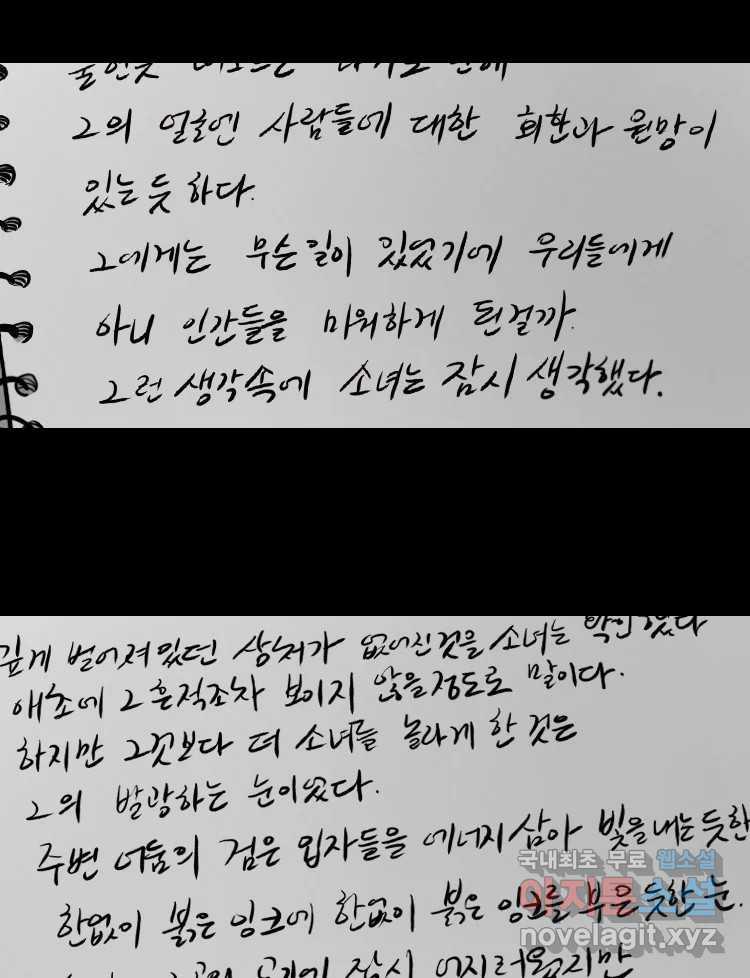 그의 얼굴엔 사람들에 대한 회한과 원망이
있는 듯 하다.
그에게는 무슨일이 있었기에 우리들에게
아니 인간들을 미워하게 된걸까.
그런 생각속에 소녀는 잠시 생각했다.
깊게 벌어져있던 상처가 없어진것을 소녀는
애초에 그 흔적조차 보이지 않을정도로 말이다.
하지만 그것보다 더 소녀를 놀라게 한 것은
그의 발광하는 눈이었다.
주변 어둠의 검은 입자들을 에너지 삼아 빛을 내는 듯한
한없이 붉은 잉크에 한없이 붉은 잉크를 부은 듯한 눈.
잠시 어지러웠지만
국내최초 무료 웹소설
아지툰 소설
novelagit.xyz